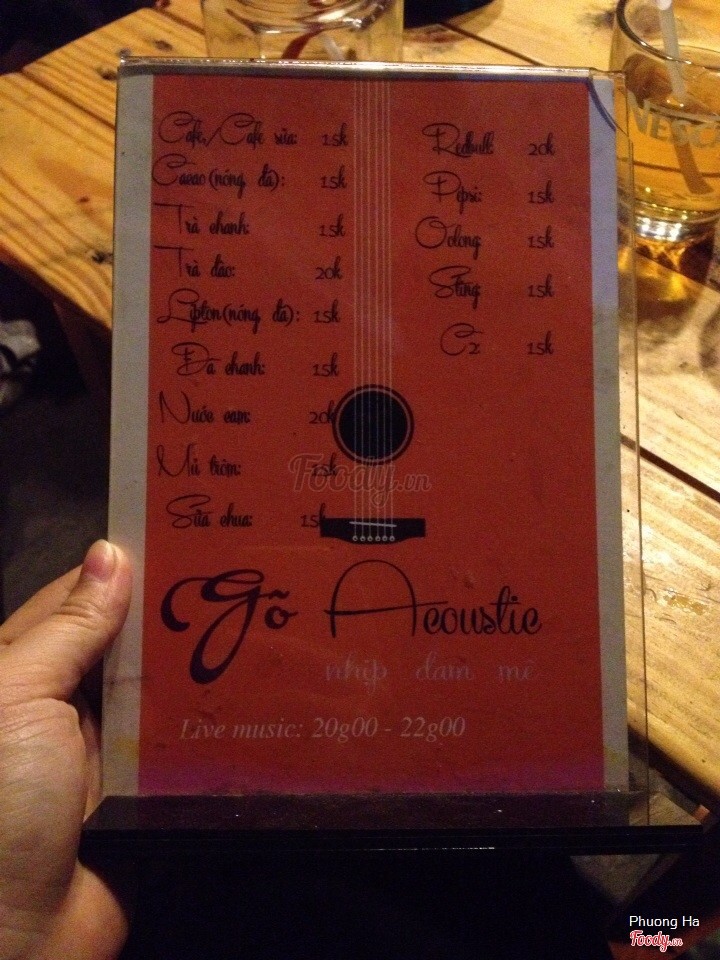 Cafe, Cafe sữa: 15k
Cacao (nóng đá): 15k
Trà chanh: 15k
Trà đào: 20k
Lipton (nóng đá): 15k
Đá chanh: 15k
Nước cam: 20k
Mủ trôm: 15k
Sữa chua: 15k
Redbull: 20k
Pepsi: 15k
Oolong: 15k
Sting: 15k
C2: 15k
Foody.vn
Gõ Acoustic
nhịp đam mê
Live music: 20g00 - 22g00
NESCA
Phuong Ha
Foody.vn